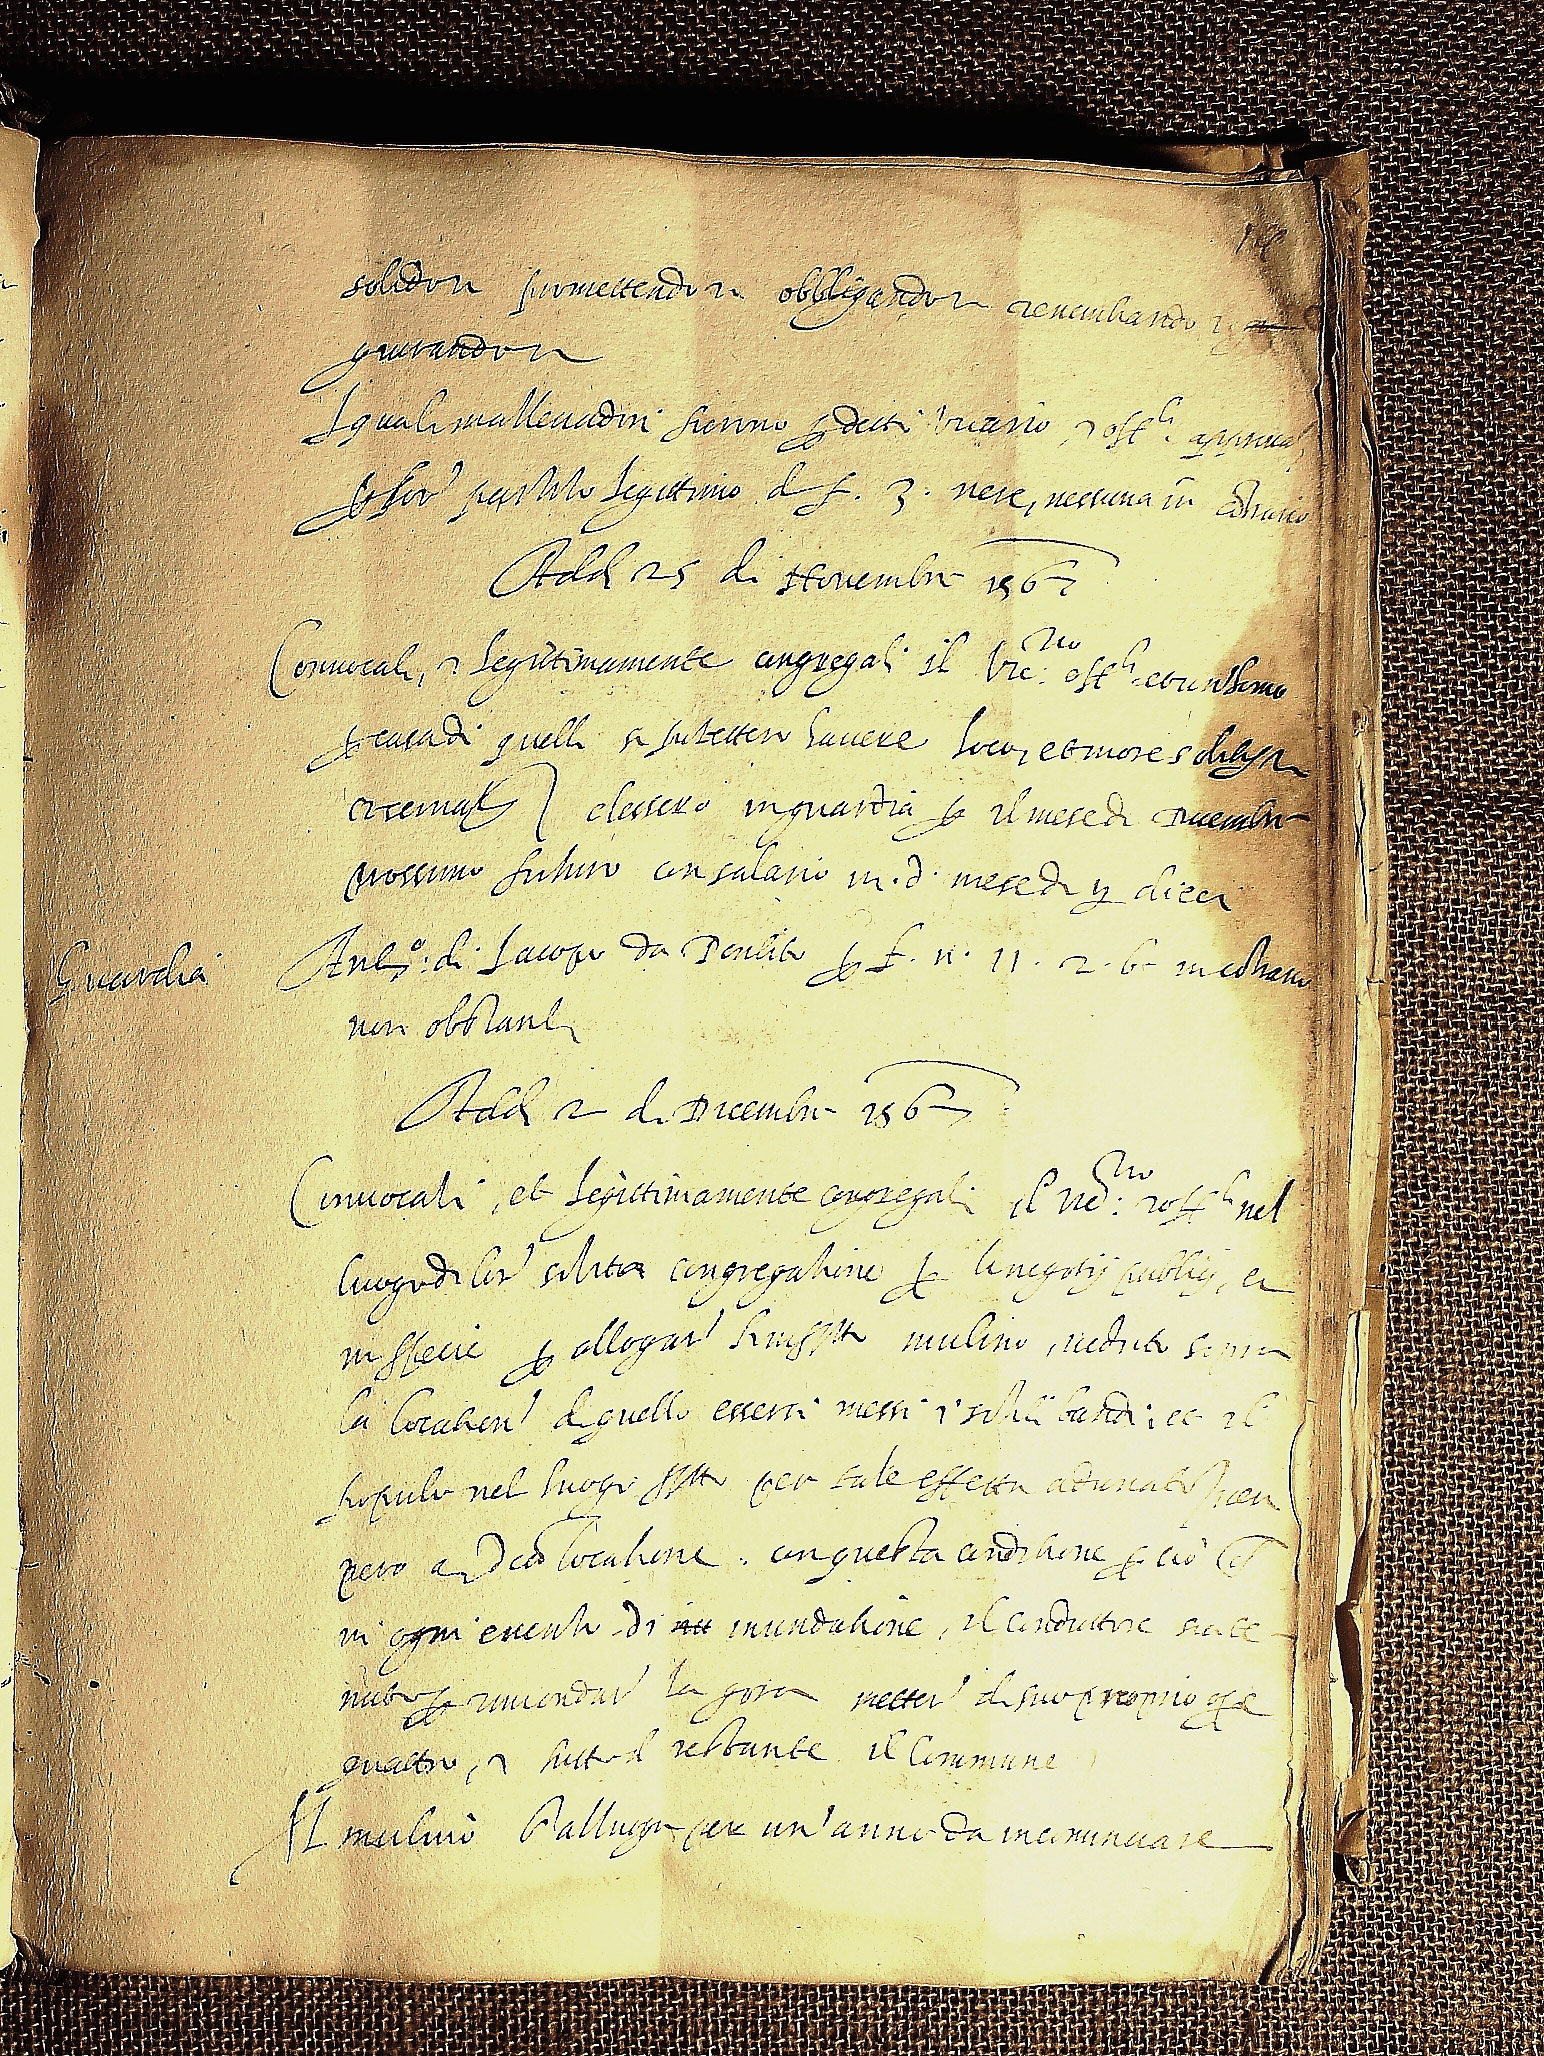 solidon promettendon obbligandon renuntiando
giurandon
I quali mallevadori furono p detti vicario, r offli approvati
p lor' partito legittimo d f. 3. nere, nessuna in contrario
Addi 25 di Novembre 1567
Convocati, r legittimamente congregati il Vic:rio offli
p causa di quelli si potettero havere loco, et more solitis
elessero in guardia p il mese di Dicembre
prossimo futuro con salario in d. mese di dieci
Guardia
Anto: di Iacopo da p f. n. 11. 2. b in contrario
non obstanti
Addi 2 di Dicembre 1567
Convocati, et legittimamente congregati il Vic:rio r offli nel
luogo di lor' solita congregatione p li negotij publici, et
in spetie p allogar' mulino, veduto sopra
la location' di quello essersi messi i soliti bandi, et il
populo nel luogo per tale effetto adunato
pero a locatione. con questa conditione p cio
in ogni evento di inundatione, il conduttore sia te
nuto p rimondar' la gora metter' di suo proprio op̱e
quattro, r tutto il restante il Commune
Il mulino s'alluoga per un' anno da incominciare